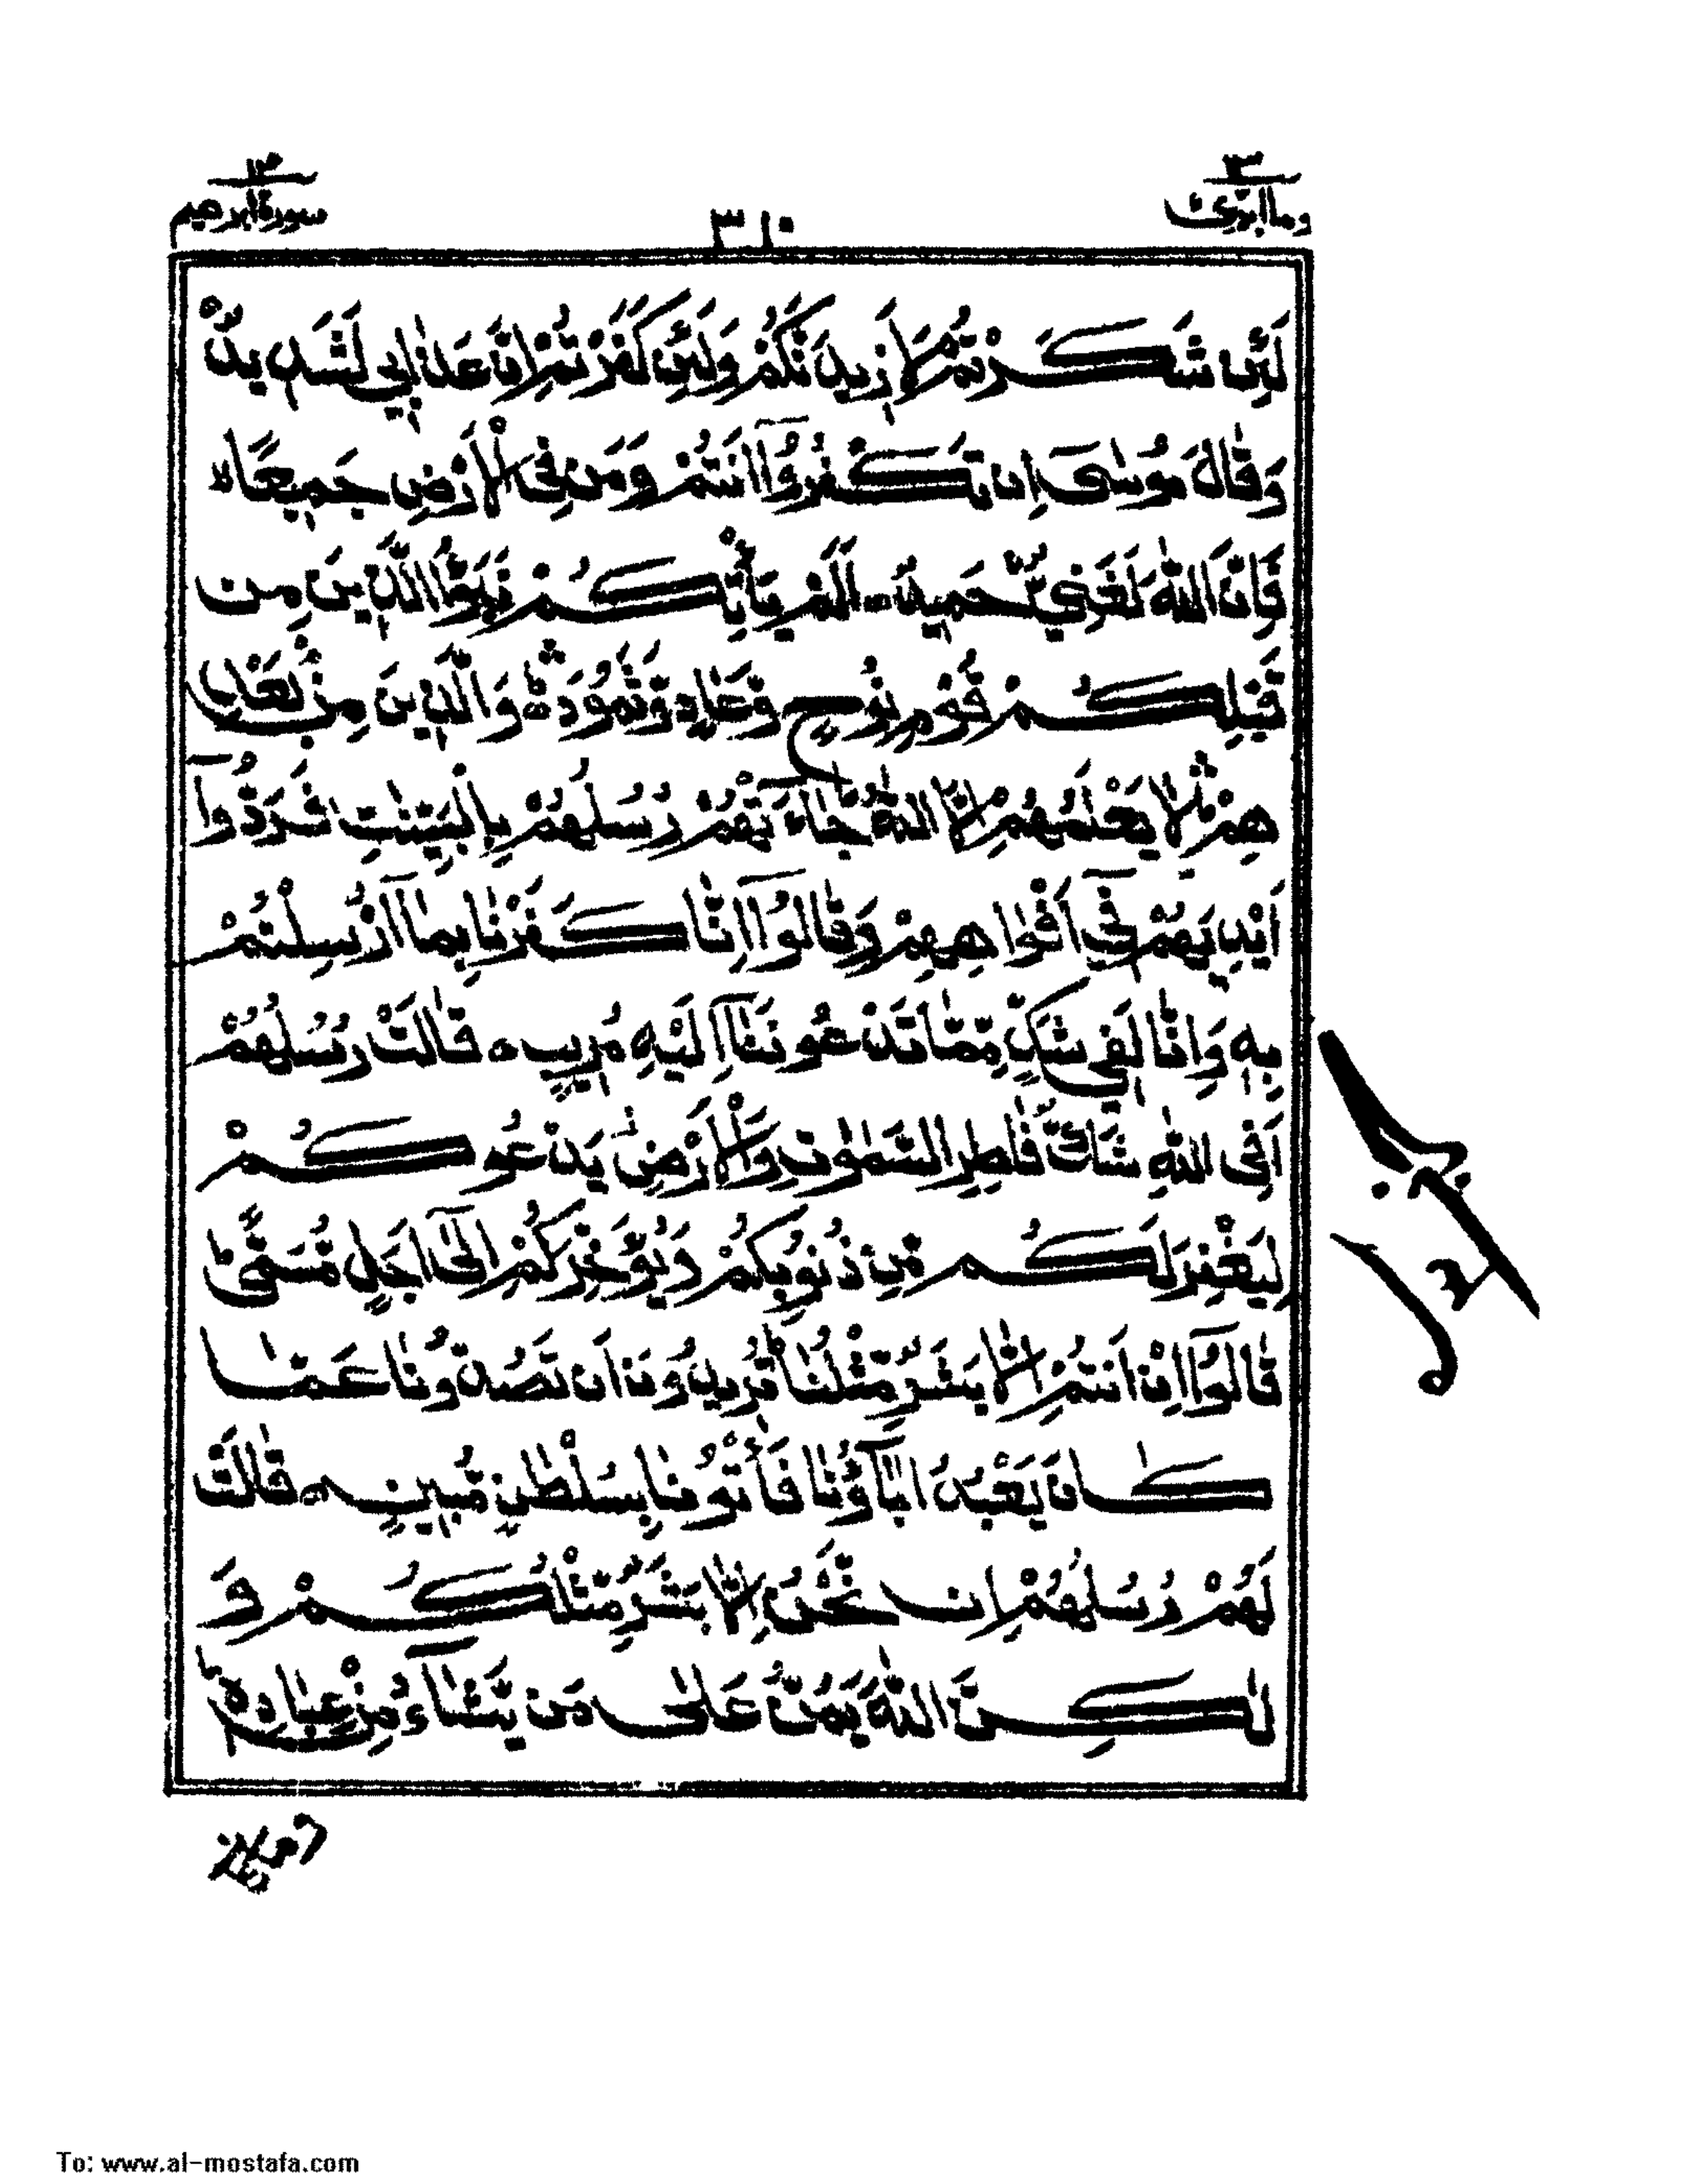 ٣
وما أبرئ
٣١٠
١٣
سورة ابرهيم
لَئِنْ شَكَرْتُمْ لَاَزِيدَنَّكُمْ وَلَئِنْ كَفَرْتُمْ اِنَّ عَذَابِي لَشَدِيدٌ
وَقَالَ مُوسٰى اِنْ تَكْفُرُوٓا اَنْتُمْ وَمَنْ فِي الْاَرْضِ جَمِيعًا
فَاِنَّ اللّٰهَ لَغَنِيٌّ حَمِيدٌ اَلَمْ يَاْتِكُمْ نَبَؤُا الَّذِينَ مِنْ
قَبْلِكُمْ قَوْمِ نُوحٍ وَّعَادٍ وَّثَمُودَ ۛ وَالَّذِينَ مِنْ بَعْدِ
هِمْ ۛ لَا يَعْلَمُهُمْ اِلَّا اللّٰهُ ؕ جَآءَتْهُمْ رُسُلُهُمْ بِالْبَيِّنٰتِ فَرَدُّوٓا
اَيْدِيَهُمْ فِيٓ اَفْوَاهِهِمْ وَقَالُوٓا اِنَّا كَفَرْنَا بِمَآ اُرْسِلْتُمْ
بِهٖ وَاِنَّا لَفِي شَكٍّ مِّمَّا تَدْعُونَنَآ اِلَيْهِ مُرِيبٍ قَالَتْ رُسُلُهُمْ
اَفِي اللّٰهِ شَكٌّ فَاطِرِ السَّمٰوٰتِ وَالْاَرْضِ ؕ يَدْعُوكُمْ
لِيَغْفِرَ لَكُمْ مِّنْ ذُنُوبِكُمْ وَيُؤَخِّرَكُمْ اِلٰٓى اَجَلٍ مُّسَمًّى ؕ
قَالُوٓا اِنْ اَنْتُمْ اِلَّا بَشَرٌ مِّثْلُنَا ؕ تُرِيدُونَ اَنْ تَصُدُّونَا عَمَّا
كَانَ يَعْبُدُ اٰبَآؤُنَا فَاْتُونَا بِسُلْطٰنٍ مُّبِينٍ قَالَتْ
لَهُمْ رُسُلُهُمْ اِنْ نَّحْنُ اِلَّا بَشَرٌ مِّثْلُكُمْ وَ
لٰكِنَّ اللّٰهَ يَمُنُّ عَلٰى مَنْ يَّشَآءُ مِنْ عِبَادِهٖ ؕ
To: www.al-mostafa.com